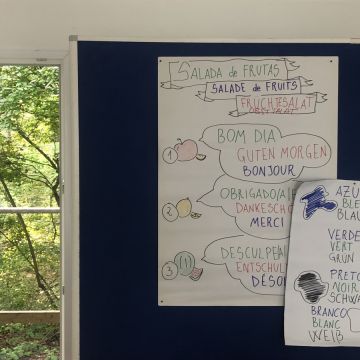 SALADA de FRUTAS
SALADE de FRUITS
FRUCHTESALAT
OBSTSALAT
1
BOM DIA
GUTEN MORGEN
BONJOUR
2
OBRIGADO/A
DANKESCHÖ
MERCI
3
DESCULPE
ENTSCHUL
DÉSO
AZU
BLE
BLAU
VERDE
VERT
GRÜN
PRETO
NOIR
SCHWA
BRANCO
BLANC
WEIẞ